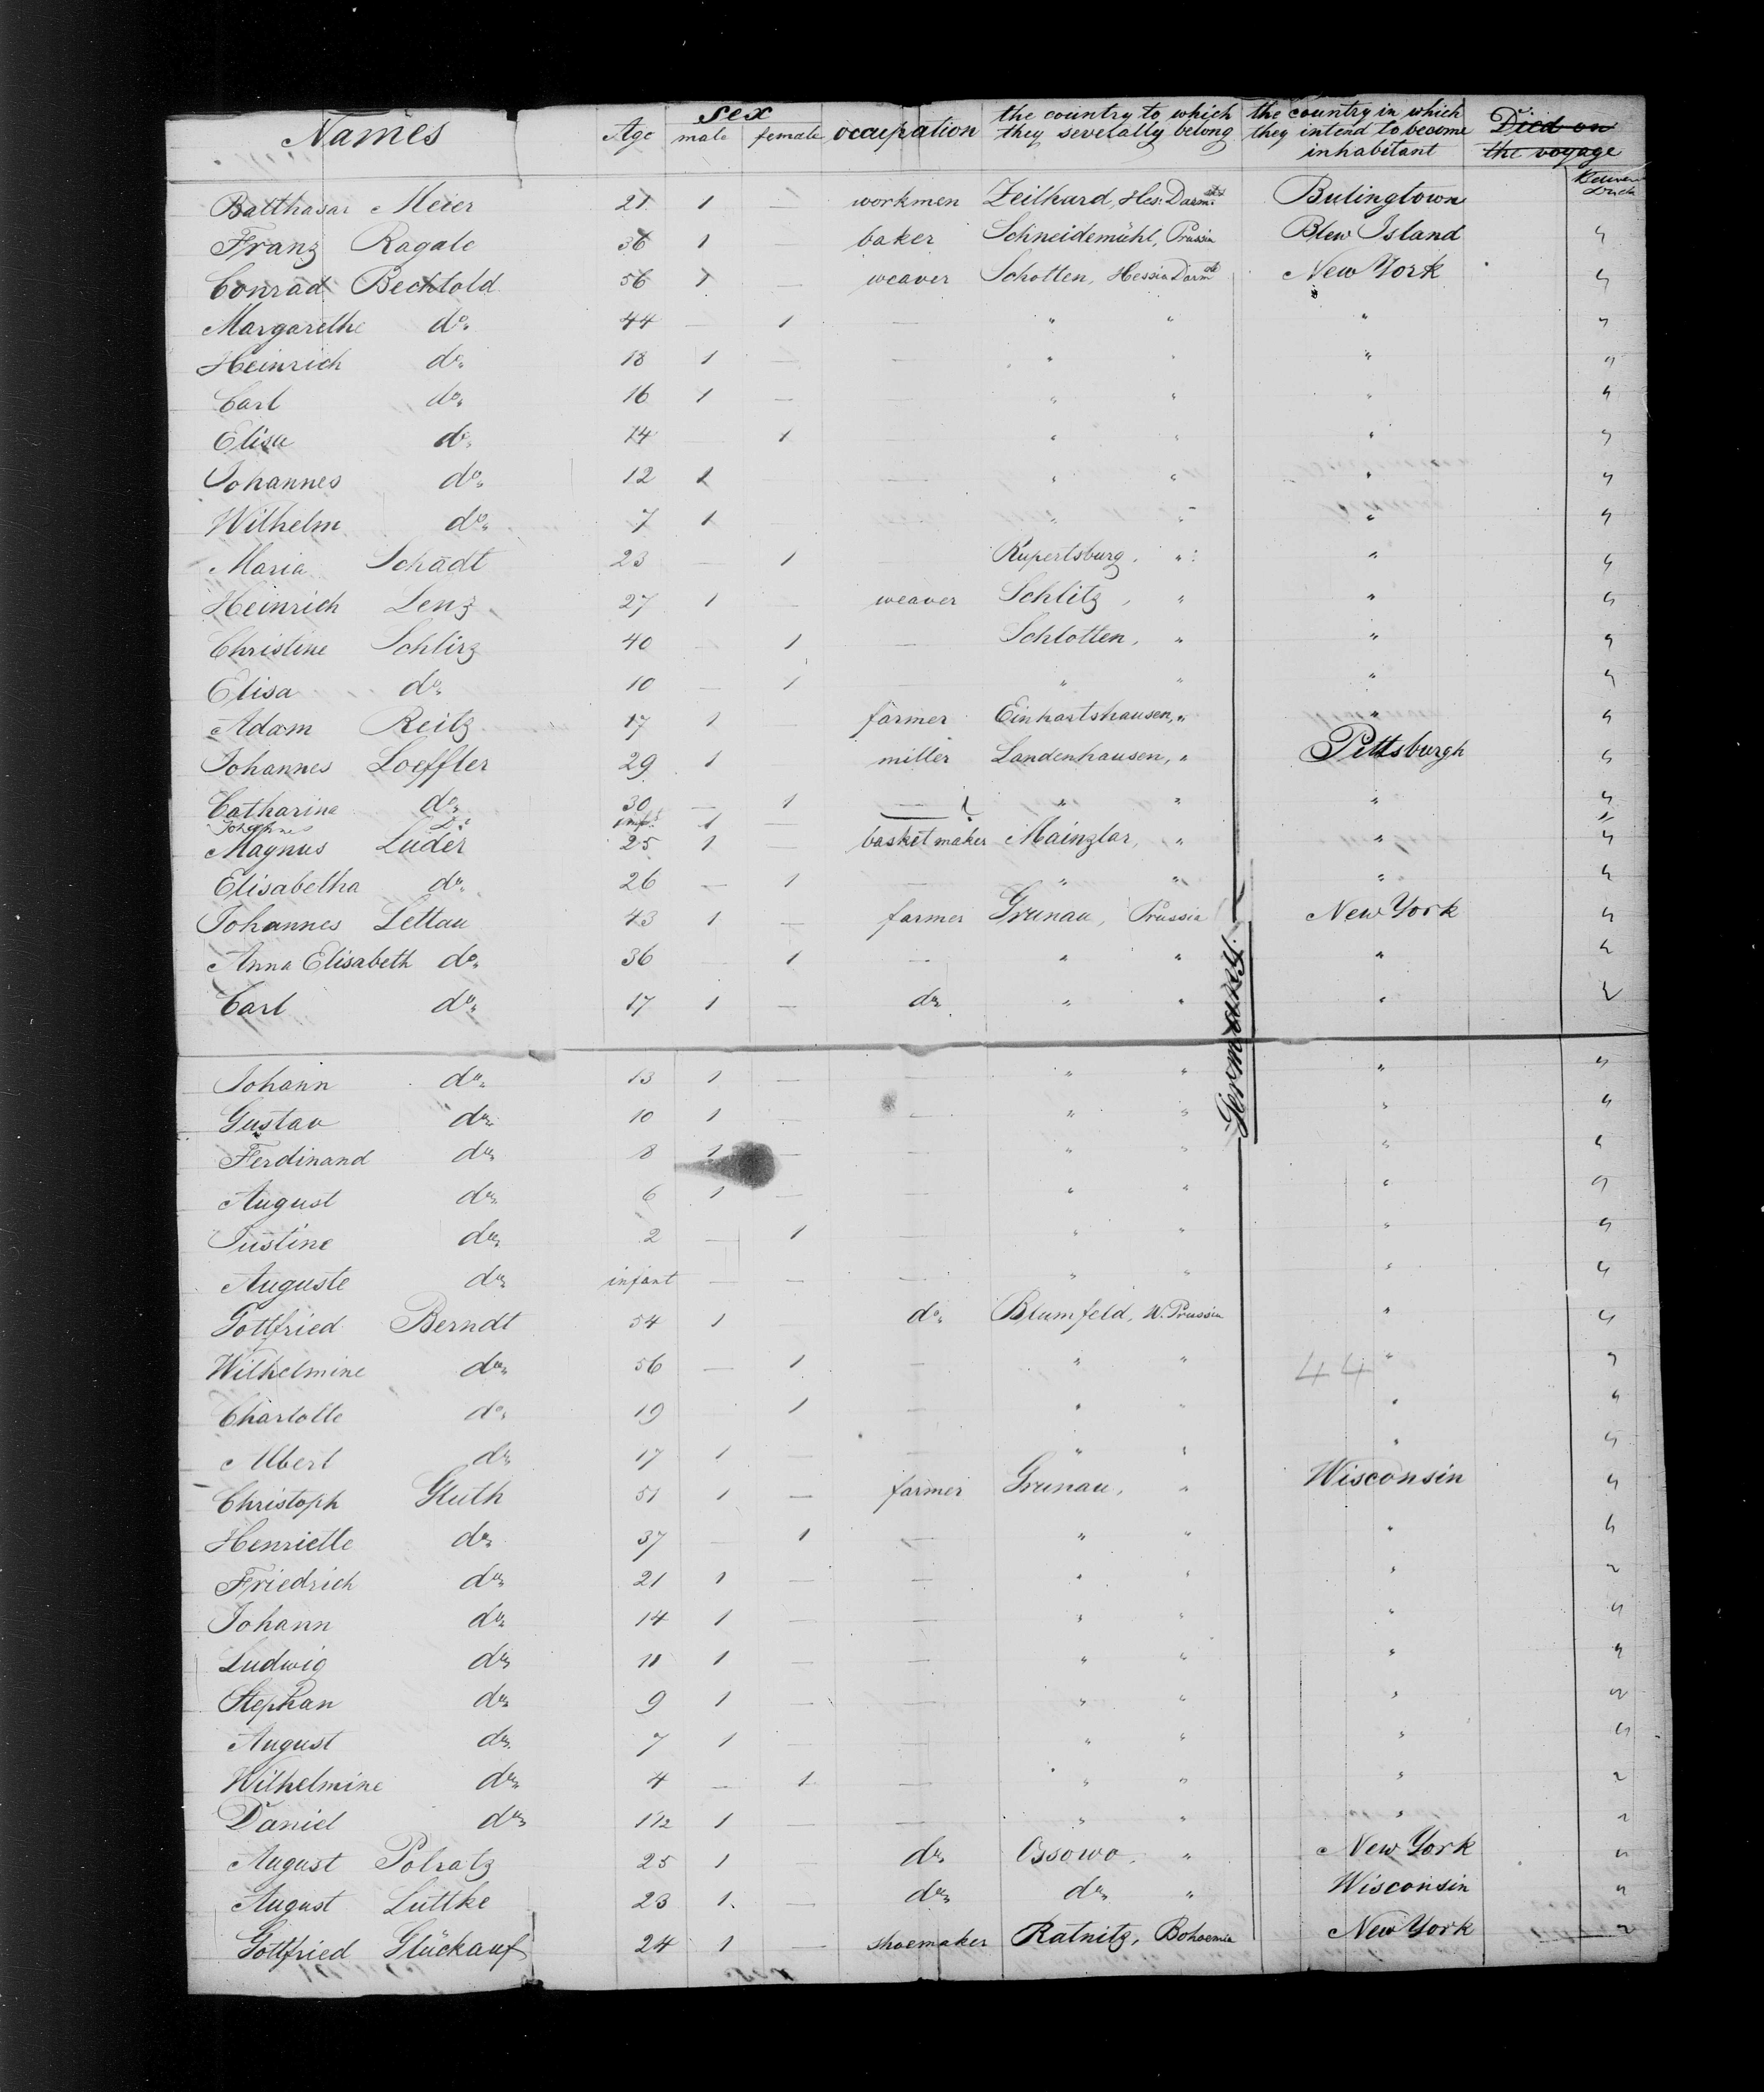 Names Age sex male female occupation the country to which they severally belong the country in which they intend to become inhabitant Died on the voyage
Balthasar Meier 21 1 — workmen Zeilhard, Hes: Darmst Bulingtown Between Deck
Franz Ragale 36 1 — baker Schneidemühl, Prussia Blew Island "
Conrad Bechtold 56 1 — weaver Schotten, Hessia Darmst New York "
Margarethe do. 44 — 1 — " " " "
Heinrich do. 18 1 — — " " " "
Carl do. 16 1 — " " " "
Elisa do. 14 1 " " " "
Johannes do. 12 1 — " " " "
Wilhelm do. 7 1 " " " "
Maria Schädt 23 — 1 Rupertsburg, " " "
Heinrich Lenz 27 1 — weaver Schlitz, " " "
Christine Schlirz 40 — 1 — Schlotten, " " "
Elisa do. 10 — 1 — " " " "
Adam Reitz 17 1 — farmer Einhartshausen, " " "
Johannes Loeffler 29 1 miller Landenhausen, " Pittsburgh "
Catharina do. 30 — 1 — " " " "
Johannes do. inft 1 — "
Magnus Luder 25 1 — basket maker Mainzlar, " " "
Elisabetha do. 26 — 1 — " " " "
Johannes Lettau 43 1 — farmer Grunau, Prussia New York "
Anna Elisabeth do. 36 — 1 — " " " "
Carl do. 17 1 — do. " " " "
Germany.
Johann do. 13 1 — — " " " "
Gustav do. 10 1 — — " " " "
Ferdinand do. 8 1 — — " " " "
August do. 6 1 — " " " "
Justine do. 2 — 1 — " " " "
Auguste do. infant — — — " " " "
Gottfried Berndt 54 1 do. Blumfeld, W. Prussia " "
Wilhelmine do. 56 — 1 — " " " "
44
Charlotte do. 19 — 1 — " " " "
Albert do. 17 1 — — " " " "
Christoph Gluth 51 1 — farmer Grunau, " Wisconsin "
Henriette do. 37 — 1 — " " " "
Friedrich do. 21 1 — — " " " "
Johann do. 14 1 — — " " " "
Ludwig do. 11 1 — — " " " "
Stephan do. 9 1 — — " " " "
August do. 7 1 — " " " "
Wilhelmine do. 4 — 1 — " " " "
Daniel do. 1 1/2 1 — — " " " "
August Polratz 25 1 do. Ossowo, " New York "
August Luttke 23 1 — do. do. " Wisconsin "
Gottfried Glückauf 24 1 — shoemaker Ratnitz, Bohoemia New York "